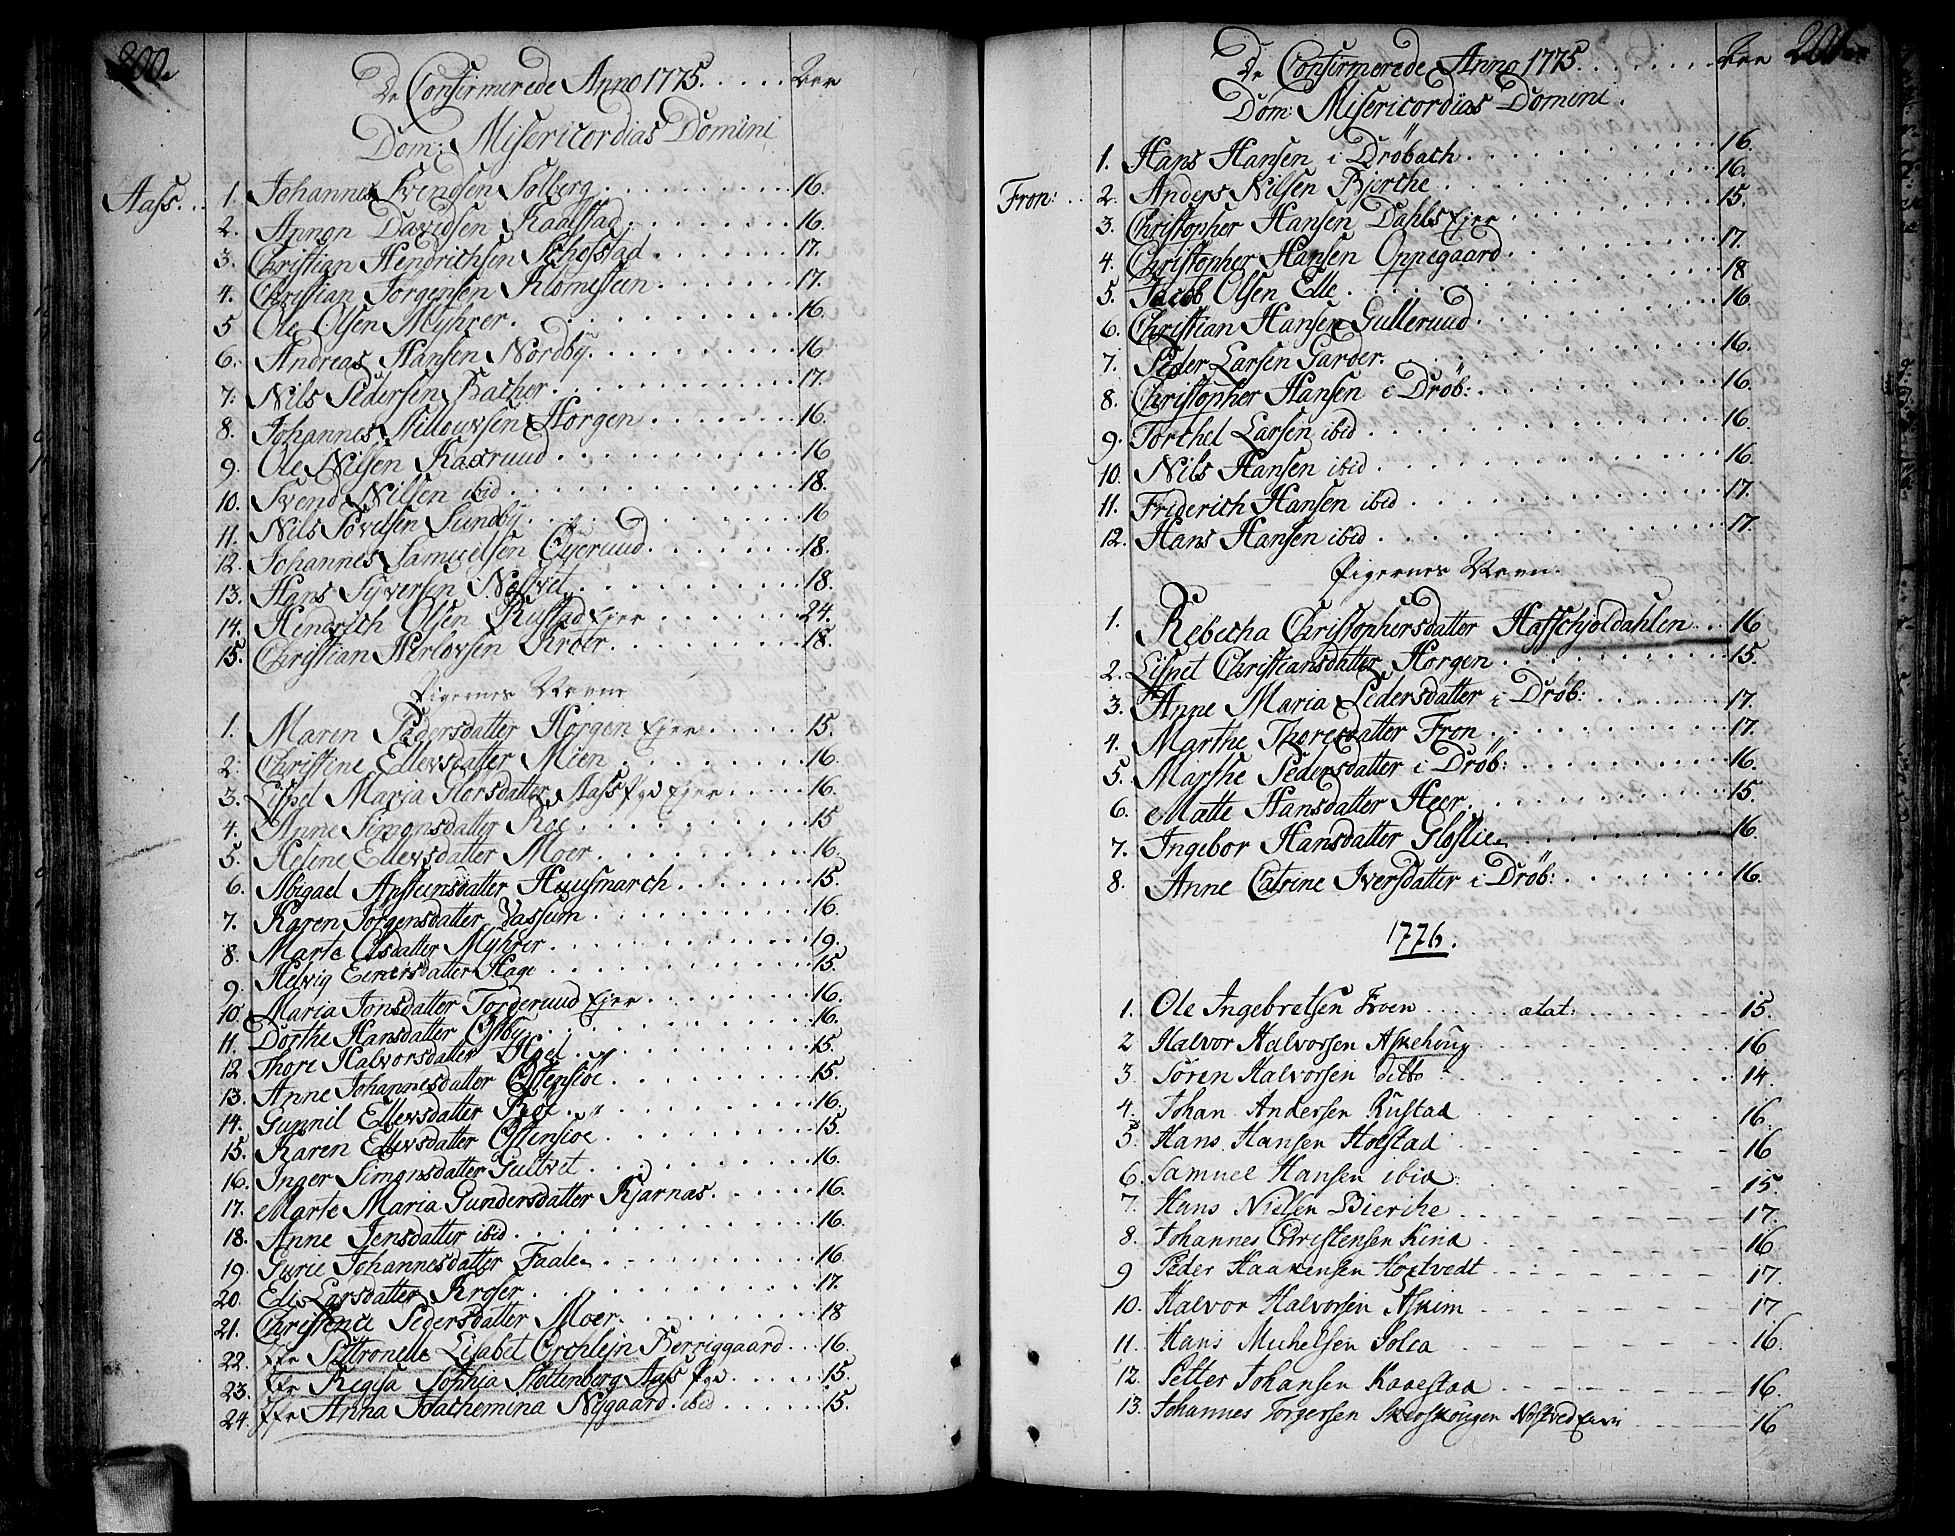 200.
De Confirmerede Anno 1775. Aar
Dom: Misericordias Domini
Aass.
1. Johannes Svendsen Solberg 16.
2. Annon Davidsen Raalstad 16.
3. Christian Hendrichsen Schofstad 17.
4. Christian Jørgensen Klomesteen 17.
5 Ole Olsen Myhrer 16.
6. Andreas Hansen Nordby 16
7. Nils Pedersen Bacher 17.
8. Johannes Hellowsen Horgen 16.
9. Ole Nilsen Kaxruud 16
10. Svend Nilsen ibid 18.
11. Nils Povelsen Sundby 16
12. Johannes Samuelsen Øyeruud 18.
13. Hans Syversen Nestvet 18.
14. Hendrich Olsen Rustad Ejer 24.
15. Christian Herlovsen Kroer 18.
Pigernes Navne
1. Maren Pedersdatter Horgen Ejer 15.
2. Christine Ellevsdatter Mien 16.
3. Lispet Maria Olorsdatter Aass Pgd Ejer 16.
4. Anne Simonsdatter Roe 15
5. Helene Ellevsdatter Moer 16.
6. Abigael Anstensdatter Huusmarch 15.
7. Karen Jørgensdatter Vassum 16.
8. Marte Olsdatter Myhrer 19.
9. Helvig Eenersdatter Hage 15.
10 Maria Jonsdatter Torderuud Ejer 16.
11. Dorthe Hansdatter Østby 16.
12 Thore Halvorsdatter Hoel 15.
13. Anne Johannesdatter Østensiøe 15.
14. Gunnil Ellevsdatter Roe 16.
15. Karen Ellevsdatter Østensiøe 15.
16. Inger Simonsdatter Gultvet 16.
17. Marte Maria Gundersdatter Kjærnas 16.
18. Anne Jensdatter ibid 16.
19. Gurie Johannesdatter Faale 16
20. Edis Larsdatter Kroser 17.
21. Christence Pedersdatter Moer 18
22. Jfr Pettronelle Lisabet Orchlejn Berriggaard 16.
23. Jfr Regisa Sophia Stottenberg Aass Pgd 15.
24. Jfr Anna Joachemina Nygaard ibid 15.
201.
De Confirmerede Anno 1775. Aar
Dom: Misericordias Domini.
Fron:
1. Hans Hansen i Drøbach 16.
2. Anders Nilsen Bjerche 16.
3. Christopher Hansen Dahls Ejer 15.
4. Christopher Hansen Oppegaard 17.
5. Jacob Olsen Elle 18
6. Christian Hansen Gulleruud 16.
7. Peder Larsen Garder 16.
8. Christopher Hansen i Drøb: 16.
9. Torchel Larsen ibid 16.
10. Nils Hansen ibid 16.
11. Friderich Hansen ibid 17.
12. Hans Hansen ibid 17.
Pigernes Navn.
1. Rebecha Christophersdatter Haffschjoldahlen 16
2. Lispet Christiansdatter Horgen 15.
3. Anne Maria Pedersdatter i Drøb: 17.
4. Marthe Thoresdatter Fron 17.
5. Marthe Pedersdatter i Drøb: 16.
6. Matte Hansdatter Heer 15.
7. Ingebor Hansdatter Gloslie 16.
8. Anne Catrine Iversdatter i Drøb: 16.
1776.
1. Ole Ingebretsen Froen ætat: 15.
2 Halvor Halvorsen Askehoug 16
3. Søren Halvorsen ditto 14.
4. Johan Andersen Rustad 16.
5. Hans Hansen Hoestad 16
6. Samuel Hansen ibid: 15.
7. Hans Nielsen Bierche 17.
8. Johannes Christensen Kind 16
9 Peder Haakensen Hoxtvedt 17.
10. Halvor Halvorsen Askim 17
11. Hans Michelsen Solea 16.
12. Petter Johansen Kaaestad 16.
13. Johannes Torgersen Skerskougen Nøstved 16